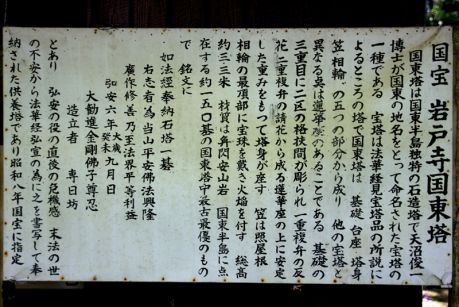 国宝 岩戸寺国東塔
国東塔は国東半島独特の石造塔で天沼俊一
博士が国東の地名をとって命名された宝塔の
一種である 宝塔は法華経見宝塔品の所説に
よるところの塔で国東塔は 基礎 台座 塔身
笠 相輪 の五つの部分から成り 他の宝塔と
異なる点は蓮華座のあることである 基礎の
三重目に二区の格狭間が彫られ一重複弁の反
花 二重複弁の請花から成る蓮華座の上に安定
した重みをもって塔身が座す 笠は照屋根
相輪の最頂部に宝珠を戴き火焔を付す 総高
約三.三米 材質は角閃安山岩 国東半島に点
在する約一五〇基の国東塔中最古最優のもの
で 銘文に
如法経奉納石塔一基
右志者為当山平安佛法興隆
廣作修善乃至法界平等利益
弘安六年大歳癸未九月日
大勧進金剛佛子尊忍
造立者 専日坊
とあり 弘安の役の直後の危機感 末法の世
の不安から法華経弘宣の為に之を書写して奉
納された供養塔であり昭和八年国宝に指定